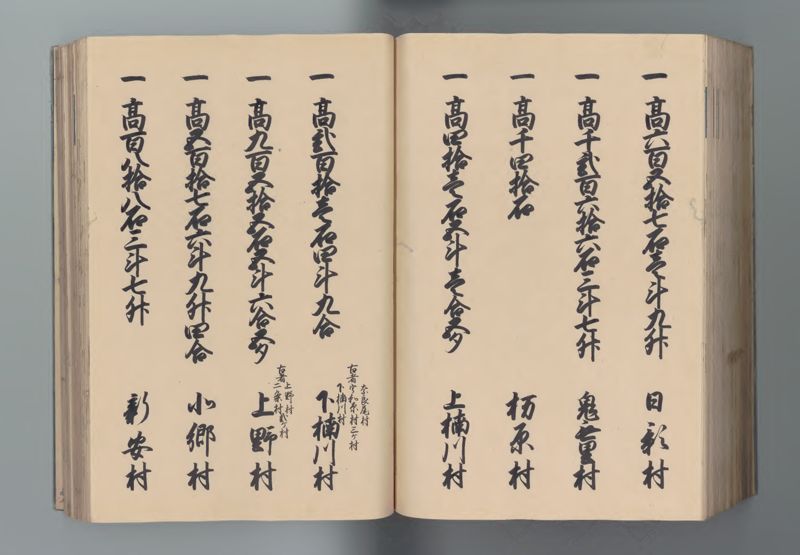 一 高六百五拾七石壱斗九升 日影村
一 高千弐百六拾六石三斗七升 鬼無里村
一 高千四拾石 栃原村
一 高四拾壱石五斗壱合五勺 上楠川村
一 高弐百拾壱石四斗九合 下楠川村
奈良尾村
古者宇和原村三ケ村
下楠川村
一 高九百五拾五石五斗六合五勺 上野村
上野村
古者二条村弐ケ村
一 高五百拾七石六斗九升四合 小郷村
一 高百八拾八石三斗七升 新安村